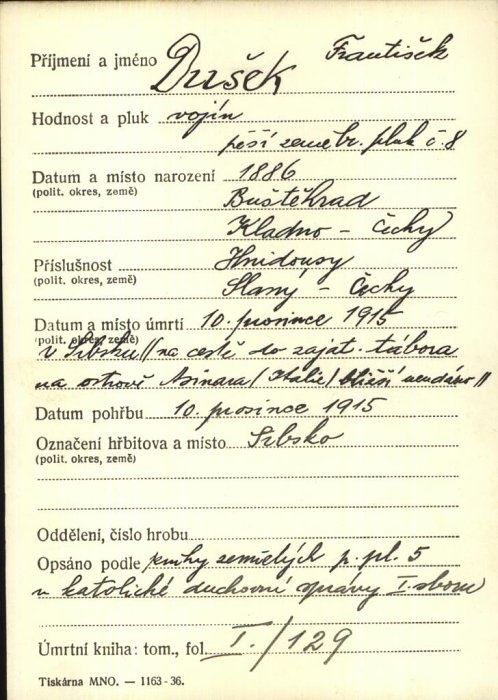 Příjmení a jméno Dušek František
Hodnost a pluk vojín
pěší zeměbr. pluk č. 8
Datum a místo narození 1886
(polit. okres, země) Buštěhrad
Kladno - Čechy
Příslušnost Hnidousy
(polit. okres, země) Slaný - Čechy
Datum a místo úmrtí 10. prosince 1915
(polit. okres, země)
v Srbsku // na cestě do zajat. tábora
na ostrově Asinara (Italie) bližší neudáno //
Datum pohřbu 10. prosince 1915
Označení hřbitova a místo Srbsko
(polit. okres, země)
Oddělení, číslo hrobu
Opsáno podle knihy zemřelých p. pl. 5
u katolické duchovní správy I. sboru
Úmrtní kniha: tom., fol. I. / 129
Tiskárna MNO. — 1163-36.